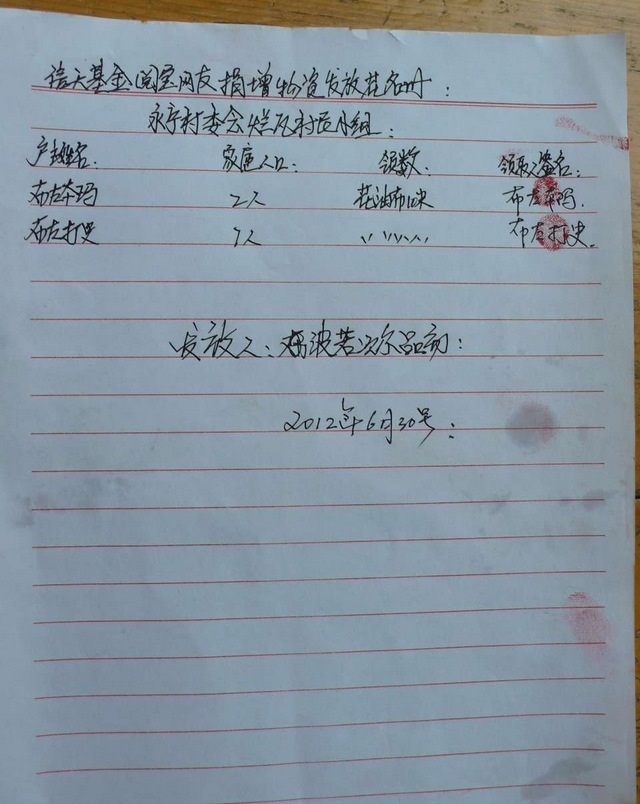 信天基金阅室网友捐增物资发放花名册:
永宁村委会烂瓦村四小组:
户主姓名: 家庭人口: 领数: 领取人签名:
布左本玛 2人 花油布1块 布左本玛.
布左打史 7人 〃 〃〃〃 布左打史.
发放人: 次尔品初:
2012年6月30号: